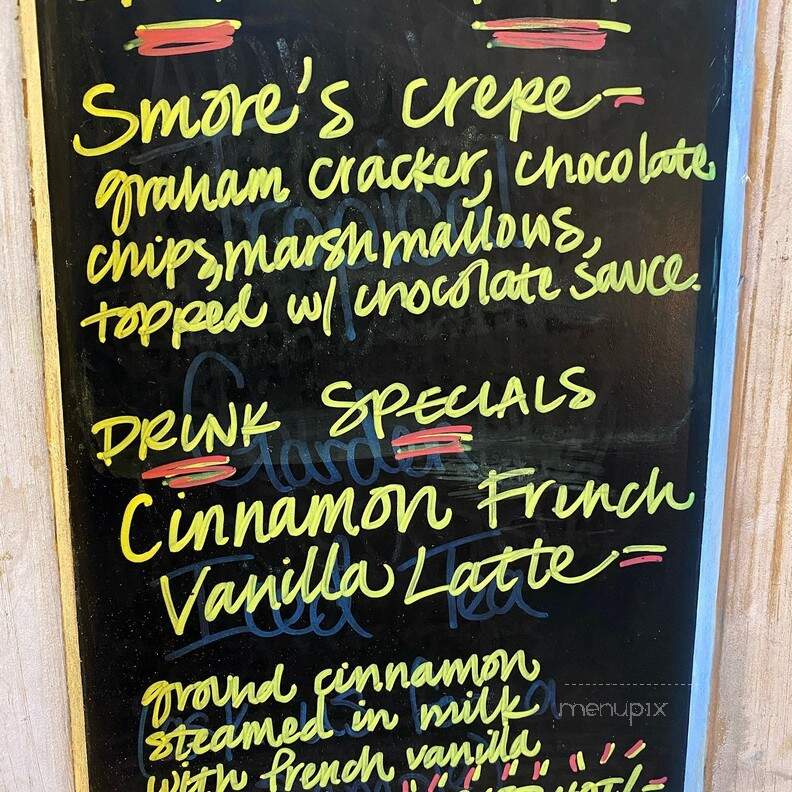 Smore's crepe-
graham cracker, chocolate
chips, marshmallows,
topped w/ chocolate sauce.
DRINK SPECIALS
Cinnamon French
Vanilla Latte-
ground cinnamon
steamed in milk
with french vanilla
Tropical
Garden
Iced Tea
menupix